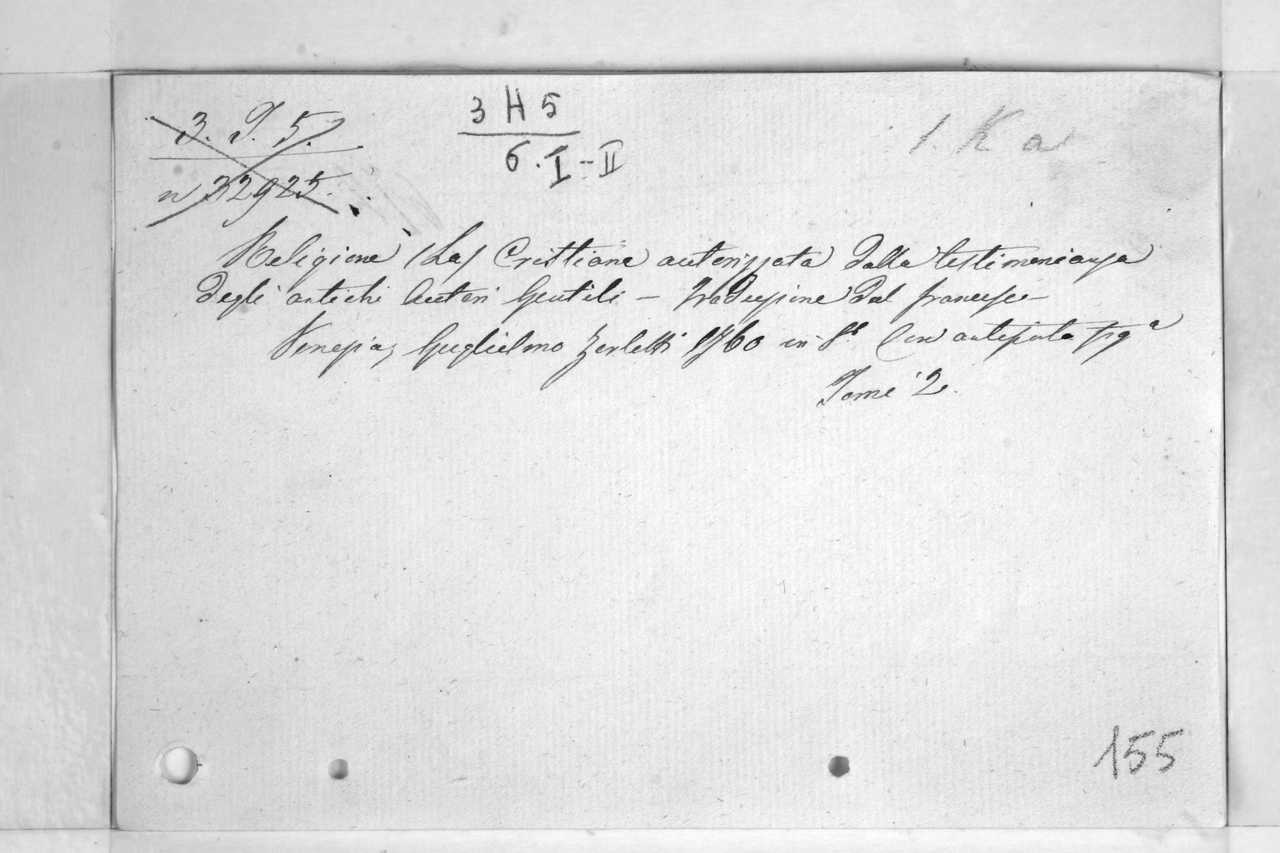 3. I. 5.
n 32925.
3 H 5
6. I-II
1. K a
Religione (La) Cristiana autorizzata dalla testimonianza
degli antichi Autori Gentili – traduzione dal francese –
Venezia, Guglielmo Zerletti 1760 in 8° Con antiporta fig^a
Tomi 2.
155